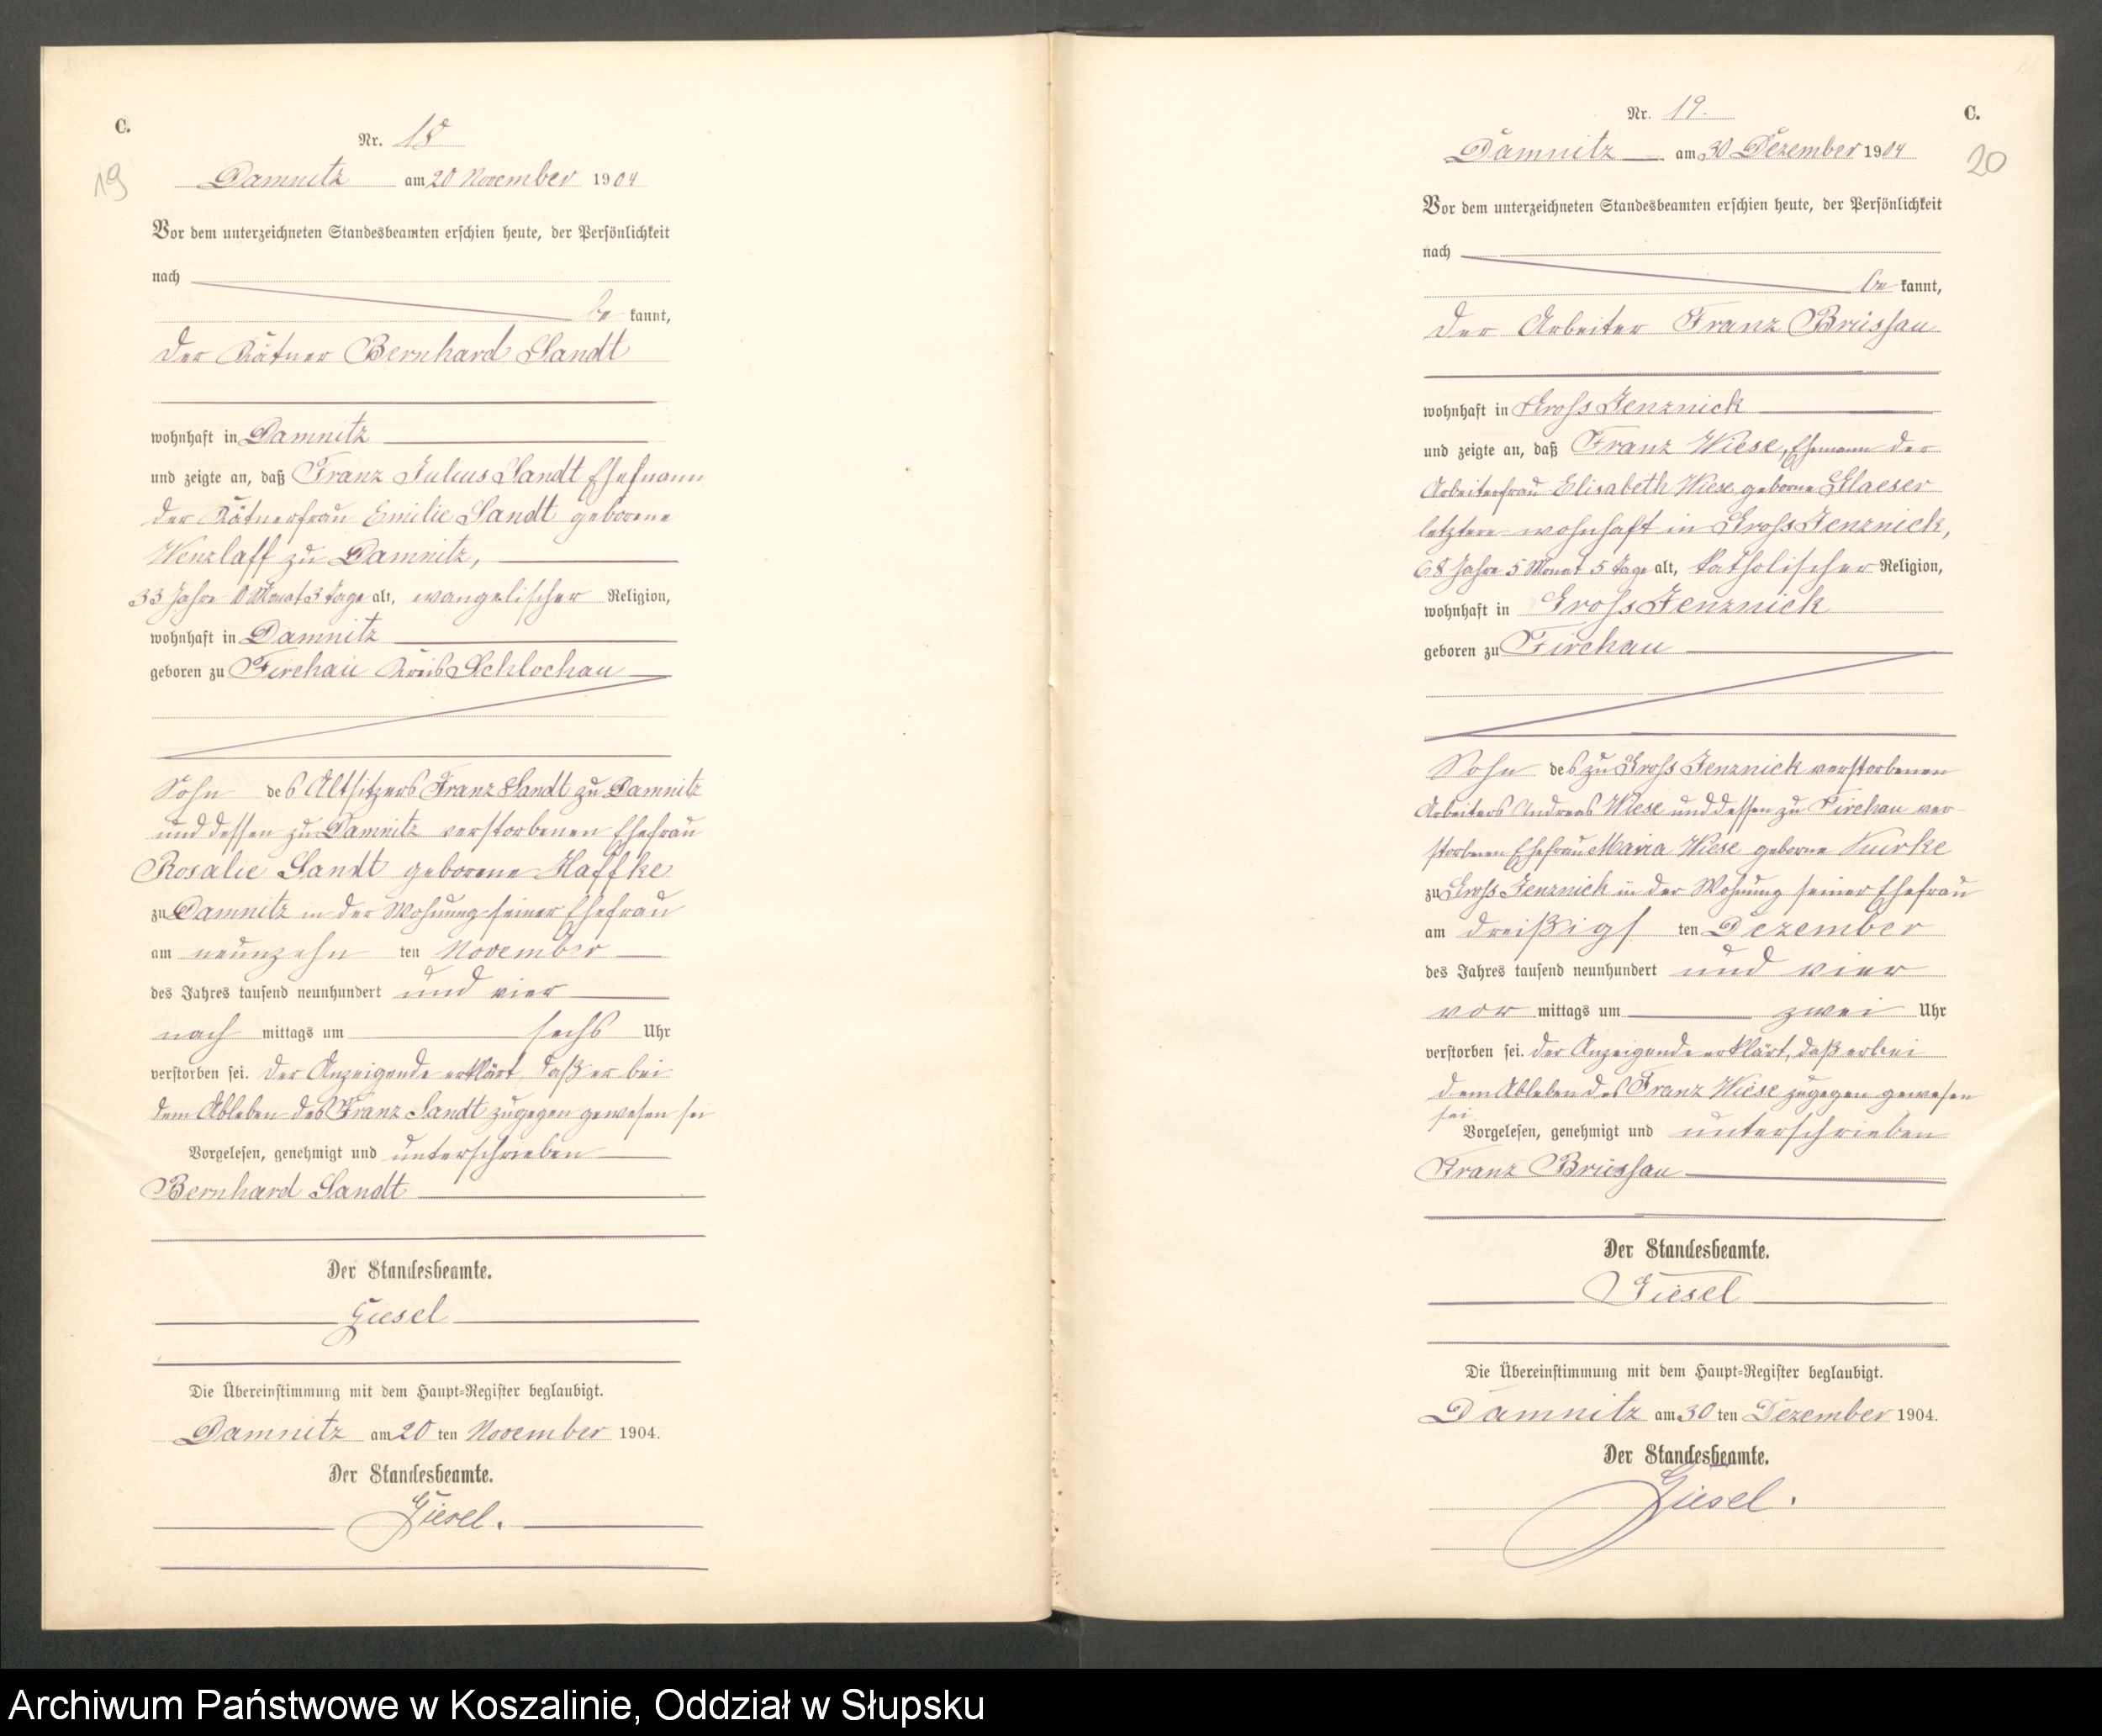 C.
19
Nr. 18
Damnitz am 20 November 1904
Vor dem unterzeichneten Standesbeamten erschien heute, der Persönlichkeit
nach
be kannt,
der Kätner Bernhard Sandt
wohnhaft in Damnitz
und zeigte an, daß Franz Julius Sandt Ehemann
der Kätnerfrau Emilie Sandt geborene
Wenzlaff zu Damnitz,
33 Jahre Monat 3 Tage alt, evangelischer Religion,
wohnhaft in Damnitz
geboren zu Firchau Kreis Schlochau
Sohn des Altsitzers Franz Sandt zu Damnitz
und dessen zu Damnitz verstorbenen Ehefrau
Rosalie Sandt geborene Haffke
zu Damnitz in der Wohnung seiner Ehefrau
am neunzehn ten November
des Jahres tausend neunhundert und vier
nach mittags um sechs Uhr
verstorben sei. Der Anzeigende erklärt, daß er bei
dem Ableben des Franz Sandt zugegen gewesen sei
Vorgelesen, genehmigt und unterschrieben
Bernhard Sandt
Der Standesbeamte.
Giesel
Die Übereinstimmung mit dem Haupt-Register beglaubigt.
Damnitz am 20 ten November 1904.
Der Standesbeamte.
Giesel.
Nr. 19.
C.
20
Damnitz am 30 Dezember 1904
Vor dem unterzeichneten Standesbeamten erschien heute, der Persönlichkeit
nach
be kannt,
der Arbeiter Franz Brüssau
wohnhaft in Gross Jenznick
und zeigte an, daß Franz Wiese, Ehemann der
Arbeiterfrau Elisabeth Wiese geborne Glaeser
letztere wohnhaft in Gross Jenznick,
68 Jahre 5 Monat 5 Tage alt, katholischer Religion,
wohnhaft in Gross Jenznick
geboren zu Firchau
Sohn des zu Gross Jenznick verstorbenen
Arbeiters Andreas Wiese und dessen zu Firchau ver-
storbenen Ehefrau Maria Wiese geborne
zu Gross Jenznick in der Wohnung seiner Ehefrau
am dreißigs ten Dezember
des Jahres tausend neunhundert und vier
vor mittags um zwei Uhr
verstorben sei. Der Anzeigende erklärt, daß er bei
dem Ableben des Franz Wiese zugegen gewesen
sei
Vorgelesen, genehmigt und unterschrieben
Franz Brüssau
Der Standesbeamte.
Giesel
Die Übereinstimmung mit dem Haupt-Register beglaubigt.
Damnitz am 30 ten Dezember 1904.
Der Standesbeamte.
Giesel.
Archiwum Państwowe w Koszalinie, Oddział w Słupsku